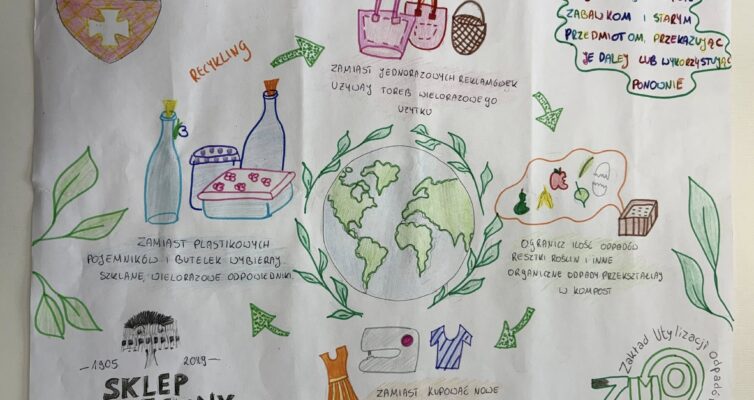 RECYKLING
ZABAWKOM I STARYM
PRZEDMIOTOM, PRZEKAZUJĄC
JE DALEJ LUB WYKORZYSTUJĄC
PONOWNIE
ZAMIAST JEDNORAZOWYCH REKLAMÓWEK
UŻYWAJ TOREB WIELORAZOWEGO
UŻYTKU
ZAMIAST PLASTIKOWYCH
POJEMNIKÓW I BUTELEK WYBIERAJ
SZKLANE, WIELORAZOWE ODPOWIEDNIKI
OGRANICZ ILOŚĆ ODPADÓW
RESZTKI ROŚLIN I INNE
ORGANICZNE ODPADY PRZEKSZTAŁCAJ
W KOMPOST
1905 2019
SKLEP
ZAMIAST KUPOWAĆ NOWE
Zakład Utylizacji Odpadów
ZUO